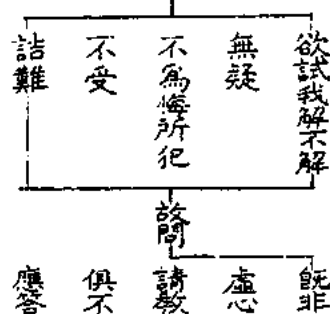 欲試我解不解
無疑
不為悔所犯
不受
詰難
故問
既非
虛心
請教
俱不
應答